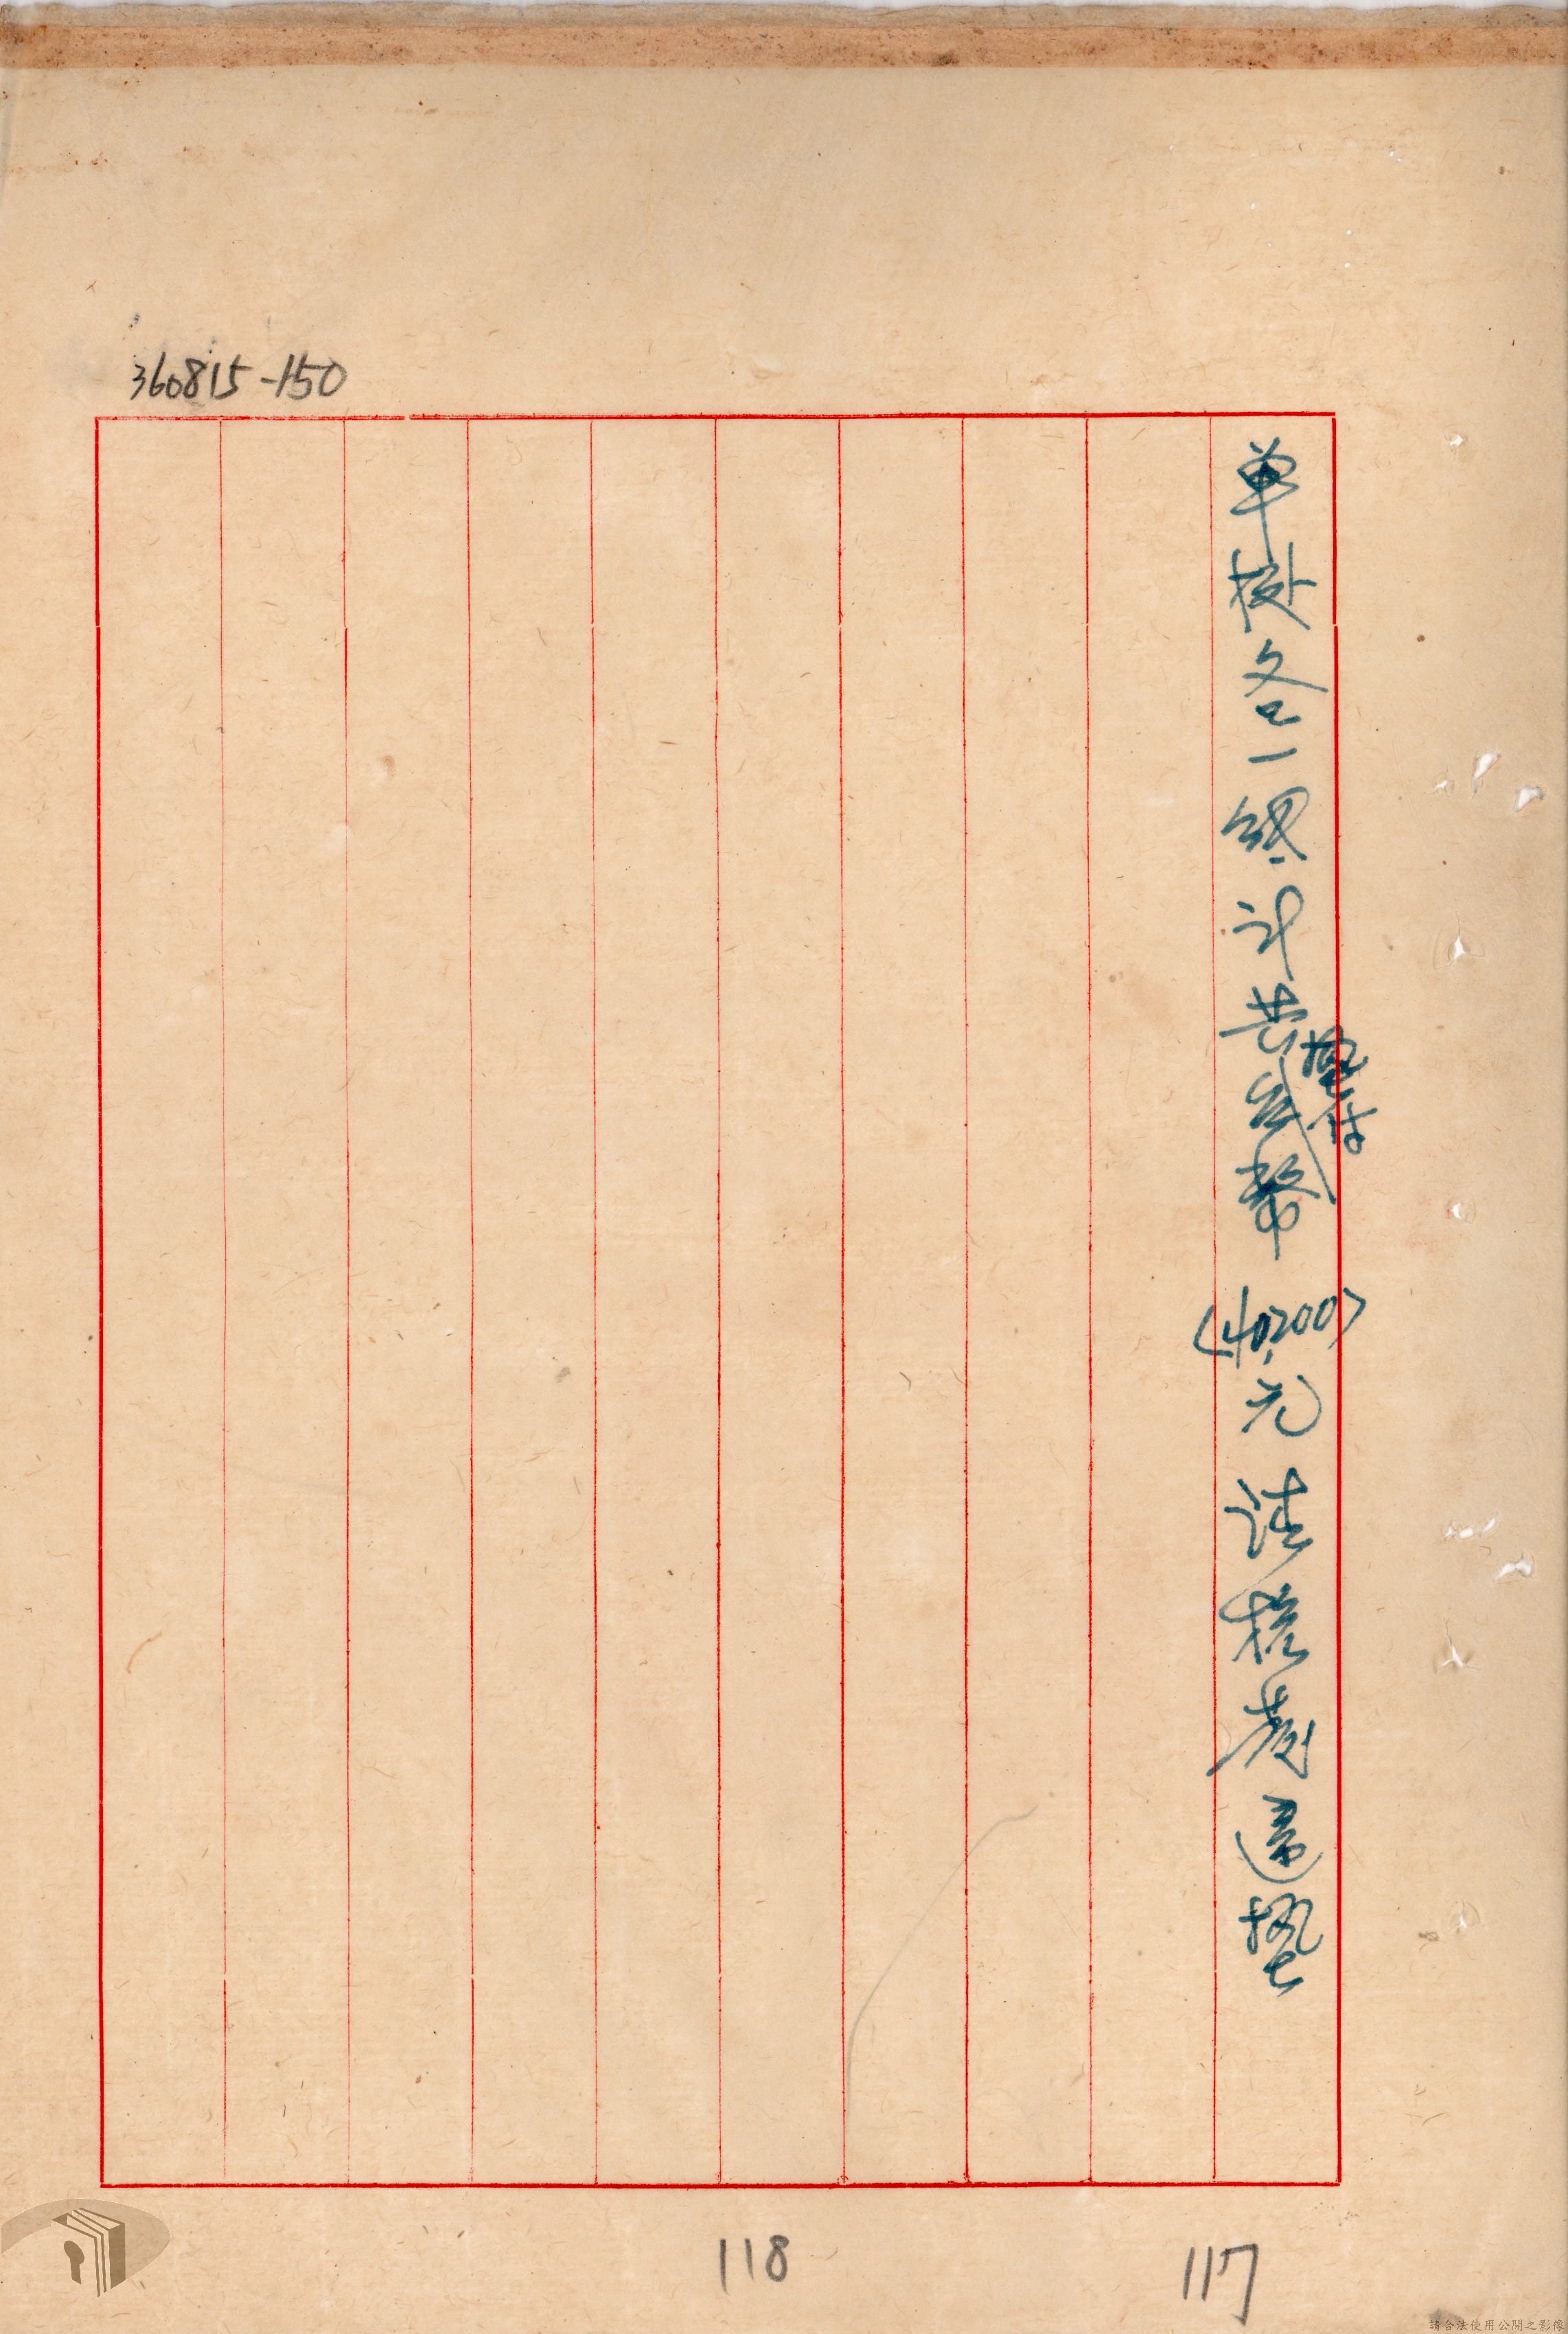 360815-150
單據各一總計共台幣
墊付
(40,200)
元請核發還墊
118
117
請合法使用公開之影像